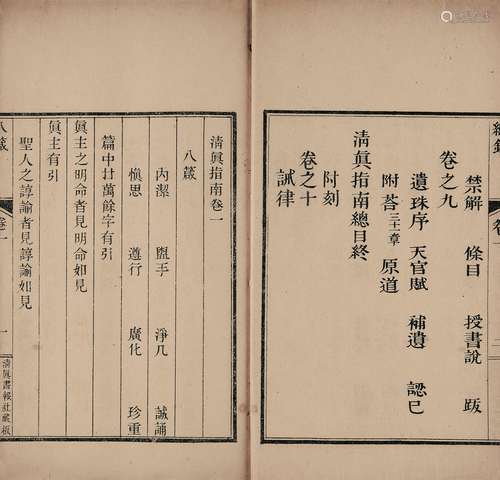 禁解 條目 授書說 跋
卷之九
遺珠序 天官賦 補遺 認巳
附荅三十一章 原道
清眞指南總目終
附刻
卷之十
誡律
清眞指南卷一
八箴
內潔 盥手 淨几 誠誦
愼思 遵行 廣化 珍重
篇中廿萬餘字有引
眞主之明命者見明命如見
眞主有引
聖人之諄諭者見諄諭如見
八箴 卷一 一 清眞書報社藏板